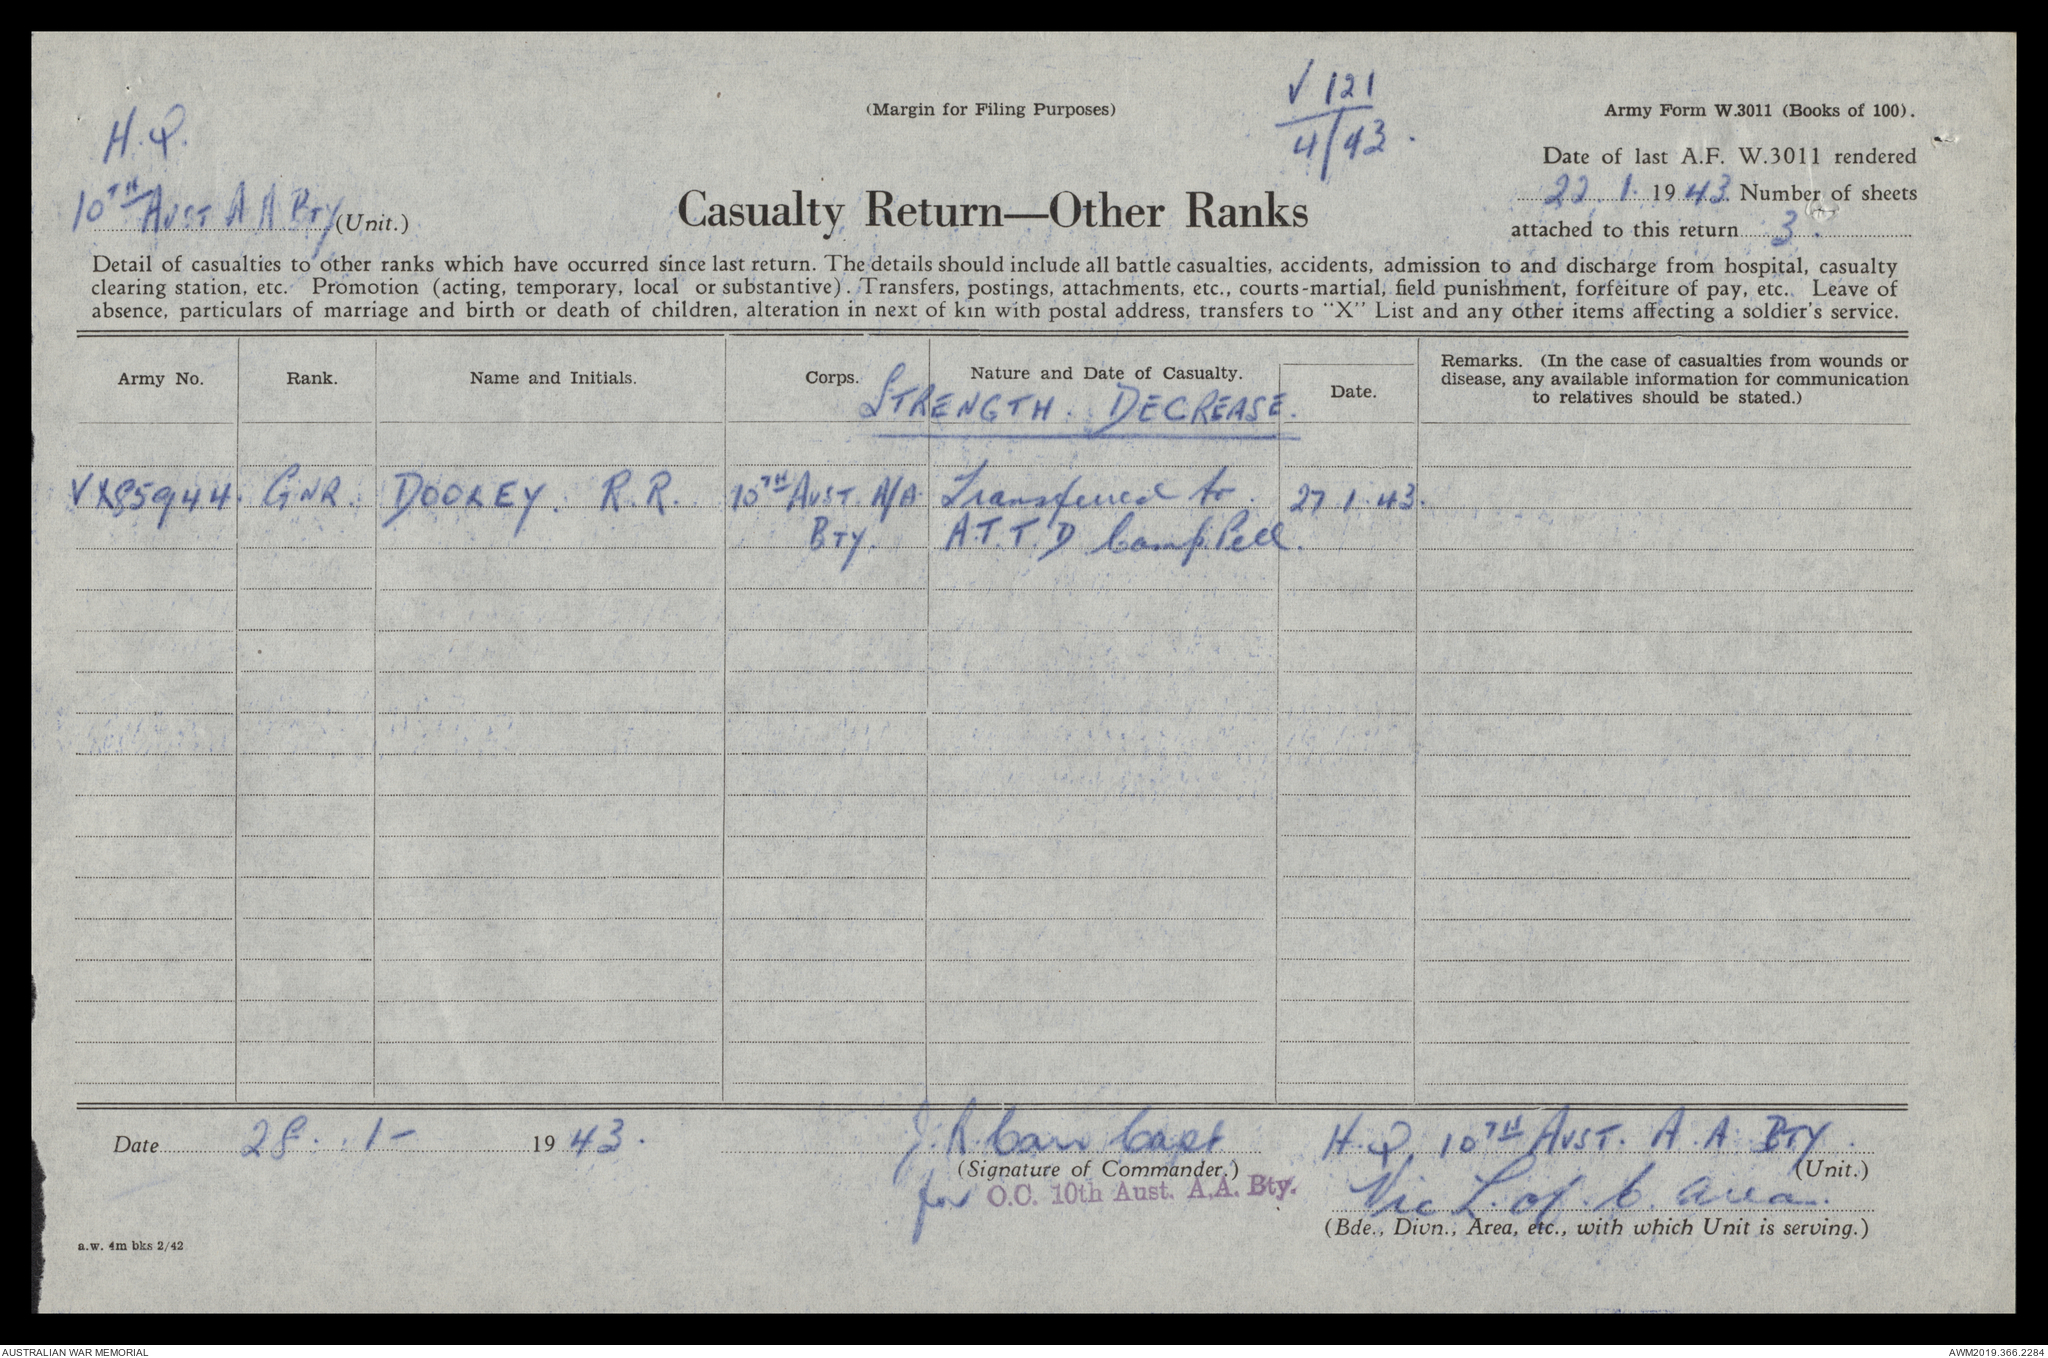 (Margin for Filing Purposes)
√ 121
4/43.
Army Form W.3011 (Books of 100).
H.Q.
10TH AUST A A BTY (Unit.)
Casualty Return—Other Ranks
Date of last A.F. W.3011 rendered
22. 1. 1943. Number of sheets
attached to this return 3.
Detail of casualties to other ranks which have occurred since last return. The details should include all battle casualties, accidents, admission to and discharge from hospital, casualty
clearing station, etc. Promotion (acting, temporary, local or substantive). Transfers, postings, attachments, etc., courts-martial, field punishment, forfeiture of pay, etc. Leave of
absence, particulars of marriage and birth or death of children, alteration in next of kin with postal address, transfers to "X" List and any other items affecting a soldier's service.
Army No. Rank. Name and Initials. Corps. Nature and Date of Casualty. Date. Remarks. (In the case of casualties from wounds or
disease, any available information for communication
to relatives should be stated.)
STRENGTH. DECREASE.
VX85944. GNR. DOOLEY. R.R. 10TH AUST. A/A Transferred to 27 1 43.
BTY. A.T.T.D Camp Pell.
Date 28. 1- 1943. J.R. Carr Capt H.Q. 10TH AUST. A.A. BTY.
(Signature of Commander.) (Unit.)
for O.C. 10th Aust. A.A. Bty. Vic L. of. C. Area.
(Bde., Divn., Area, etc., with which Unit is serving.)
a.w. 4m bks 2/42
AUSTRALIAN WAR MEMORIAL AWM2019.366.2284